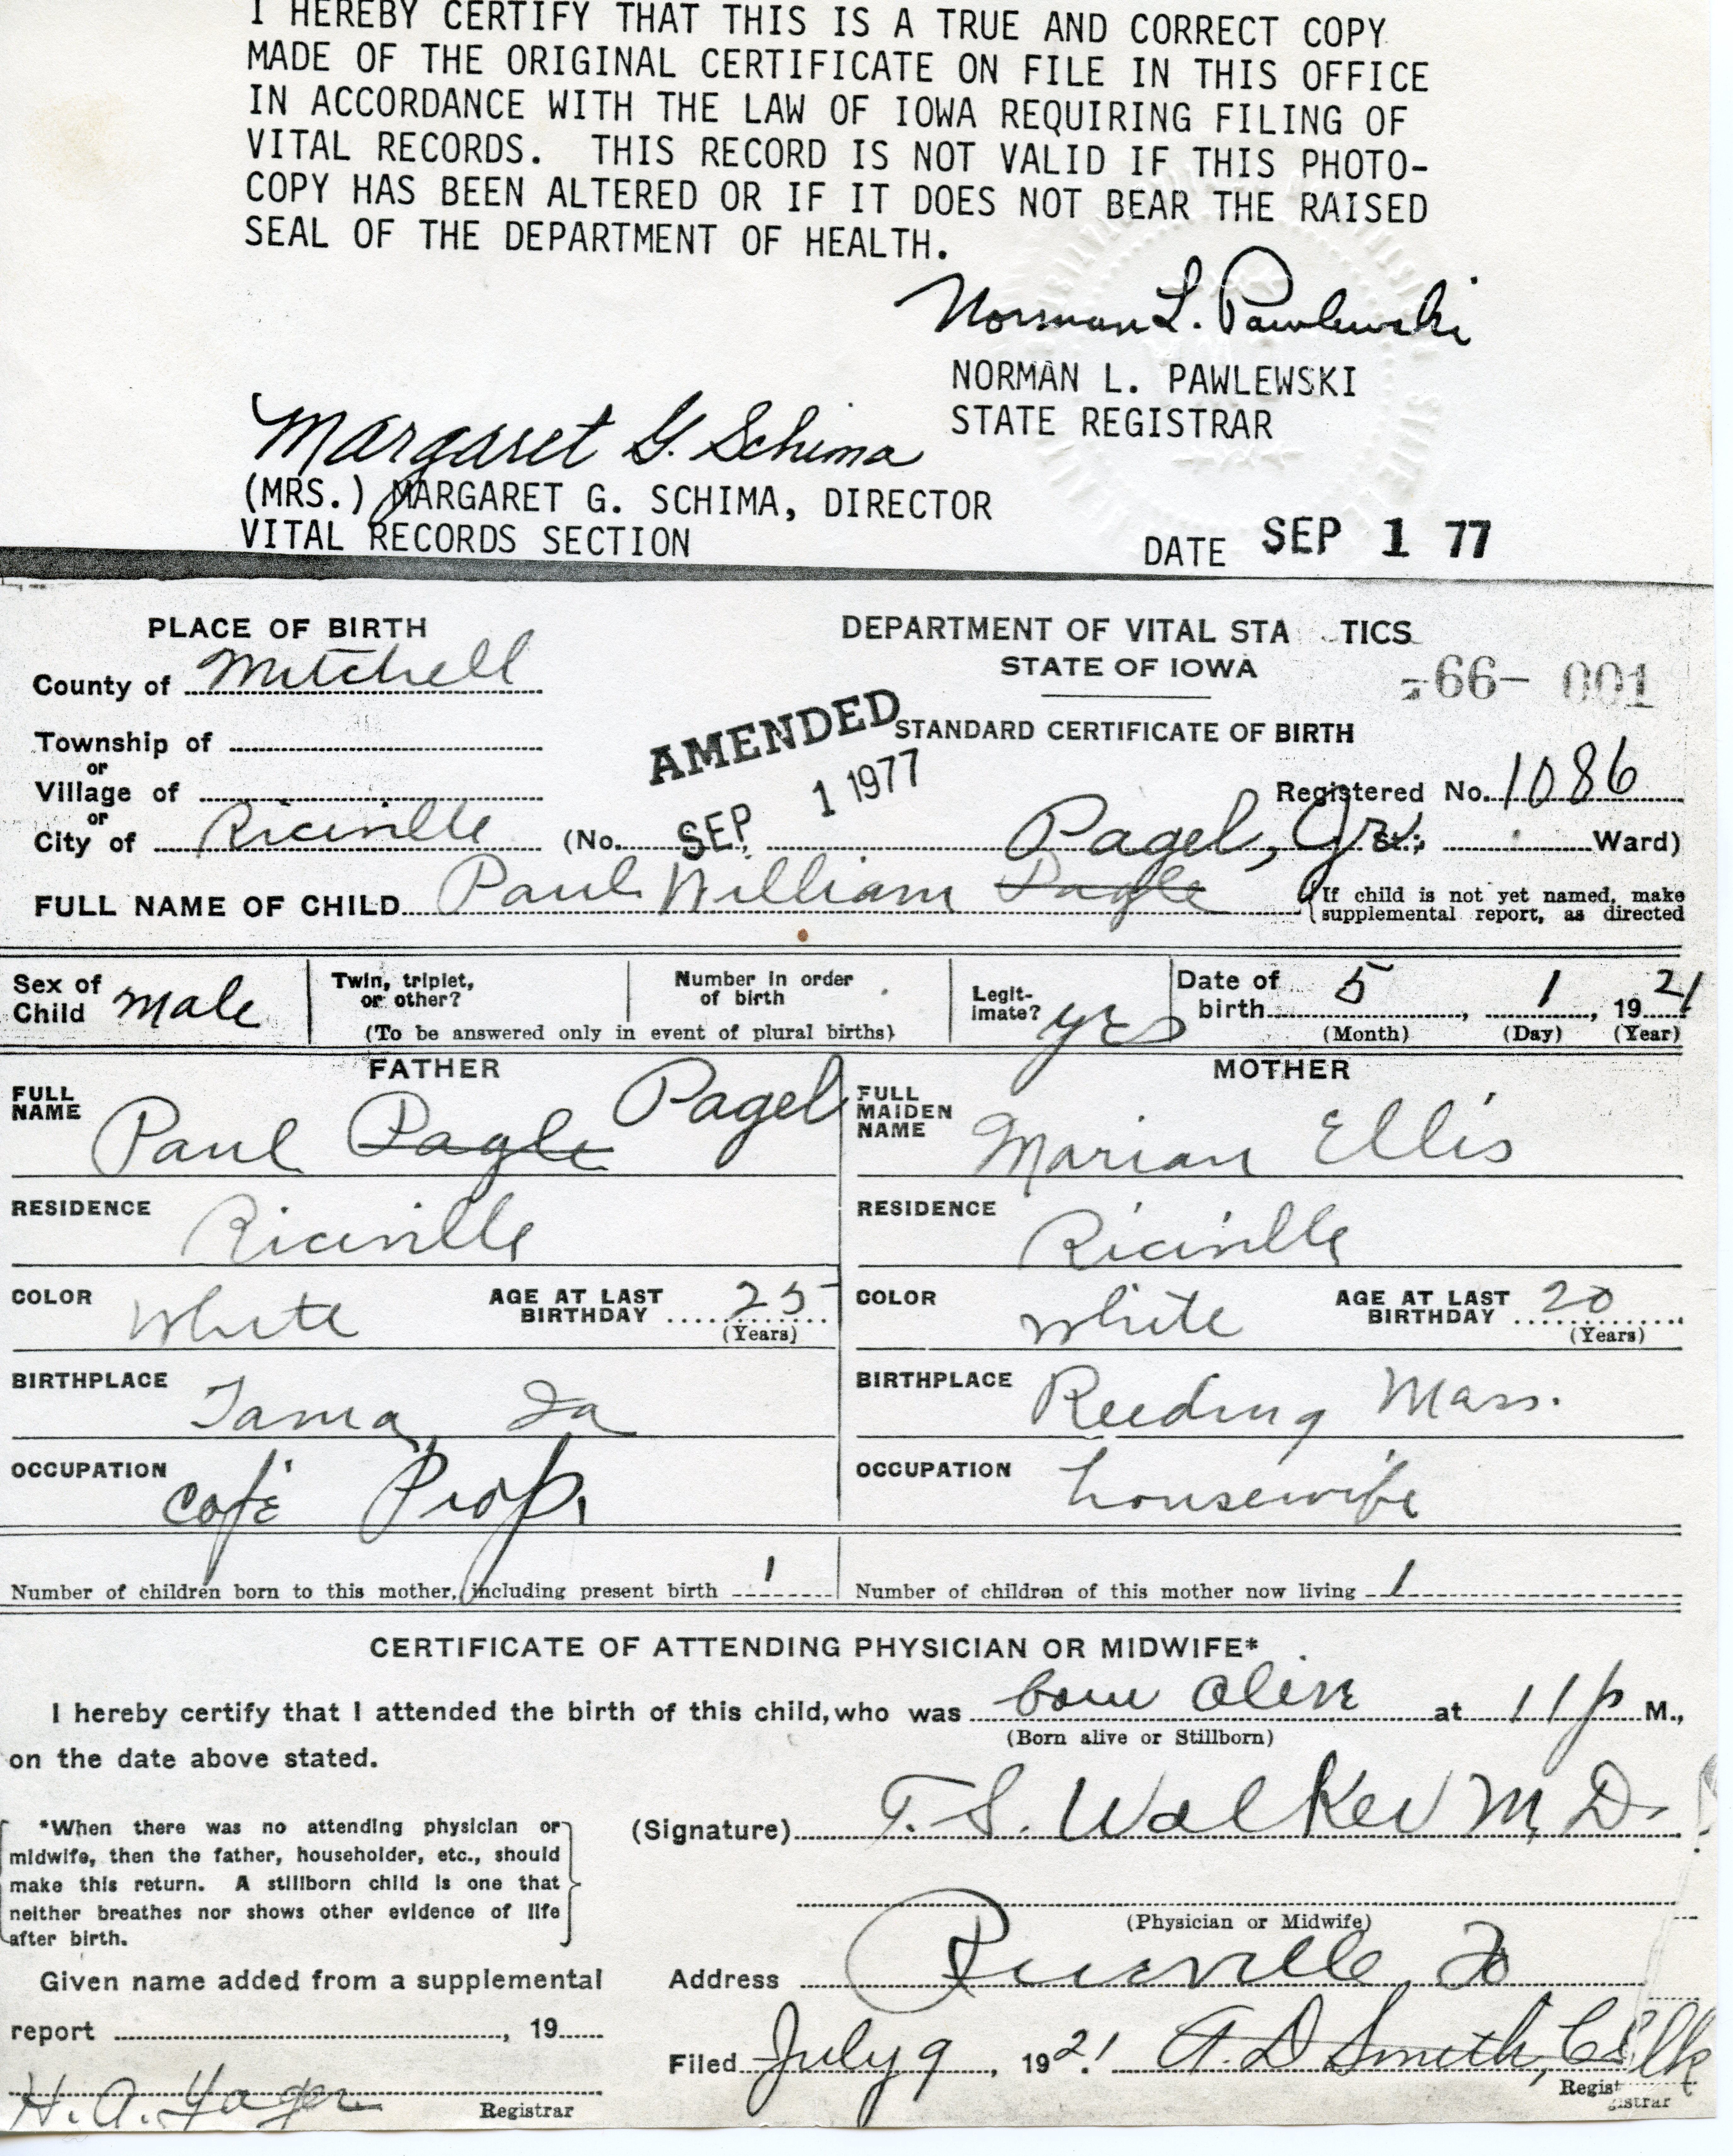 I HEREBY CERTIFY THAT THIS IS A TRUE AND CORRECT COPY
MADE OF THE ORIGINAL CERTIFICATE ON FILE IN THIS OFFICE
IN ACCORDANCE WITH THE LAW OF IOWA REQUIRING FILING OF
VITAL RECORDS. THIS RECORD IS NOT VALID IF THIS PHOTO-
COPY HAS BEEN ALTERED OR IF IT DOES NOT BEAR THE RAISED
SEAL OF THE DEPARTMENT OF HEALTH.
Norman L. Pawlewski
NORMAN L. PAWLEWSKI
STATE REGISTRAR
Margaret G. Schima
(MRS.) MARGARET G. SCHIMA, DIRECTOR
VITAL RECORDS SECTION
DATE SEP 1 77
PLACE OF BIRTH
County of Mitchell
Township of
or
Village of
or
City of Riceville
DEPARTMENT OF VITAL STA TICS
STATE OF IOWA
66- 001
AMENDED
SEP 1 1977
STANDARD CERTIFICATE OF BIRTH
Registered No. 1086
(No. St.; Ward)
Pagel, Jr.
FULL NAME OF CHILD Paul William Pagle
If child is not yet named, make
supplemental report, as directed
Sex of
Child male
Twin, triplet,
or other?
Number in order
of birth
(To be answered only in event of plural births)
Legit-
imate? yes
Date of
birth 5, 1, 1921
(Month) (Day) (Year)
FATHER
FULL
NAME Paul Pagle Pagel
RESIDENCE Riceville
COLOR White
AGE AT LAST
BIRTHDAY 25
(Years)
BIRTHPLACE Tama, Ia
OCCUPATION Cafe Prop.
MOTHER
FULL
MAIDEN
NAME Marian Ellis
RESIDENCE Riceville
COLOR white
AGE AT LAST
BIRTHDAY 20
(Years)
BIRTHPLACE Reeding Mass.
OCCUPATION housewife
Number of children born to this mother, including present birth 1
Number of children of this mother now living 1
CERTIFICATE OF ATTENDING PHYSICIAN OR MIDWIFE*
I hereby certify that I attended the birth of this child, who was born alive at 11 p M.,
(Born alive or Stillborn)
on the date above stated.
*When there was no attending physician or
midwife, then the father, householder, etc., should
make this return. A stillborn child is one that
neither breathes nor shows other evidence of life
after birth.
(Signature) T. S. Walker M.D.
(Physician or Midwife)
Given name added from a supplemental
report , 19
H. A. Yager
Registrar
Address Riceville, Io
Filed July 9, 1921 A. D. Smith, Clk
Regist
gistrar